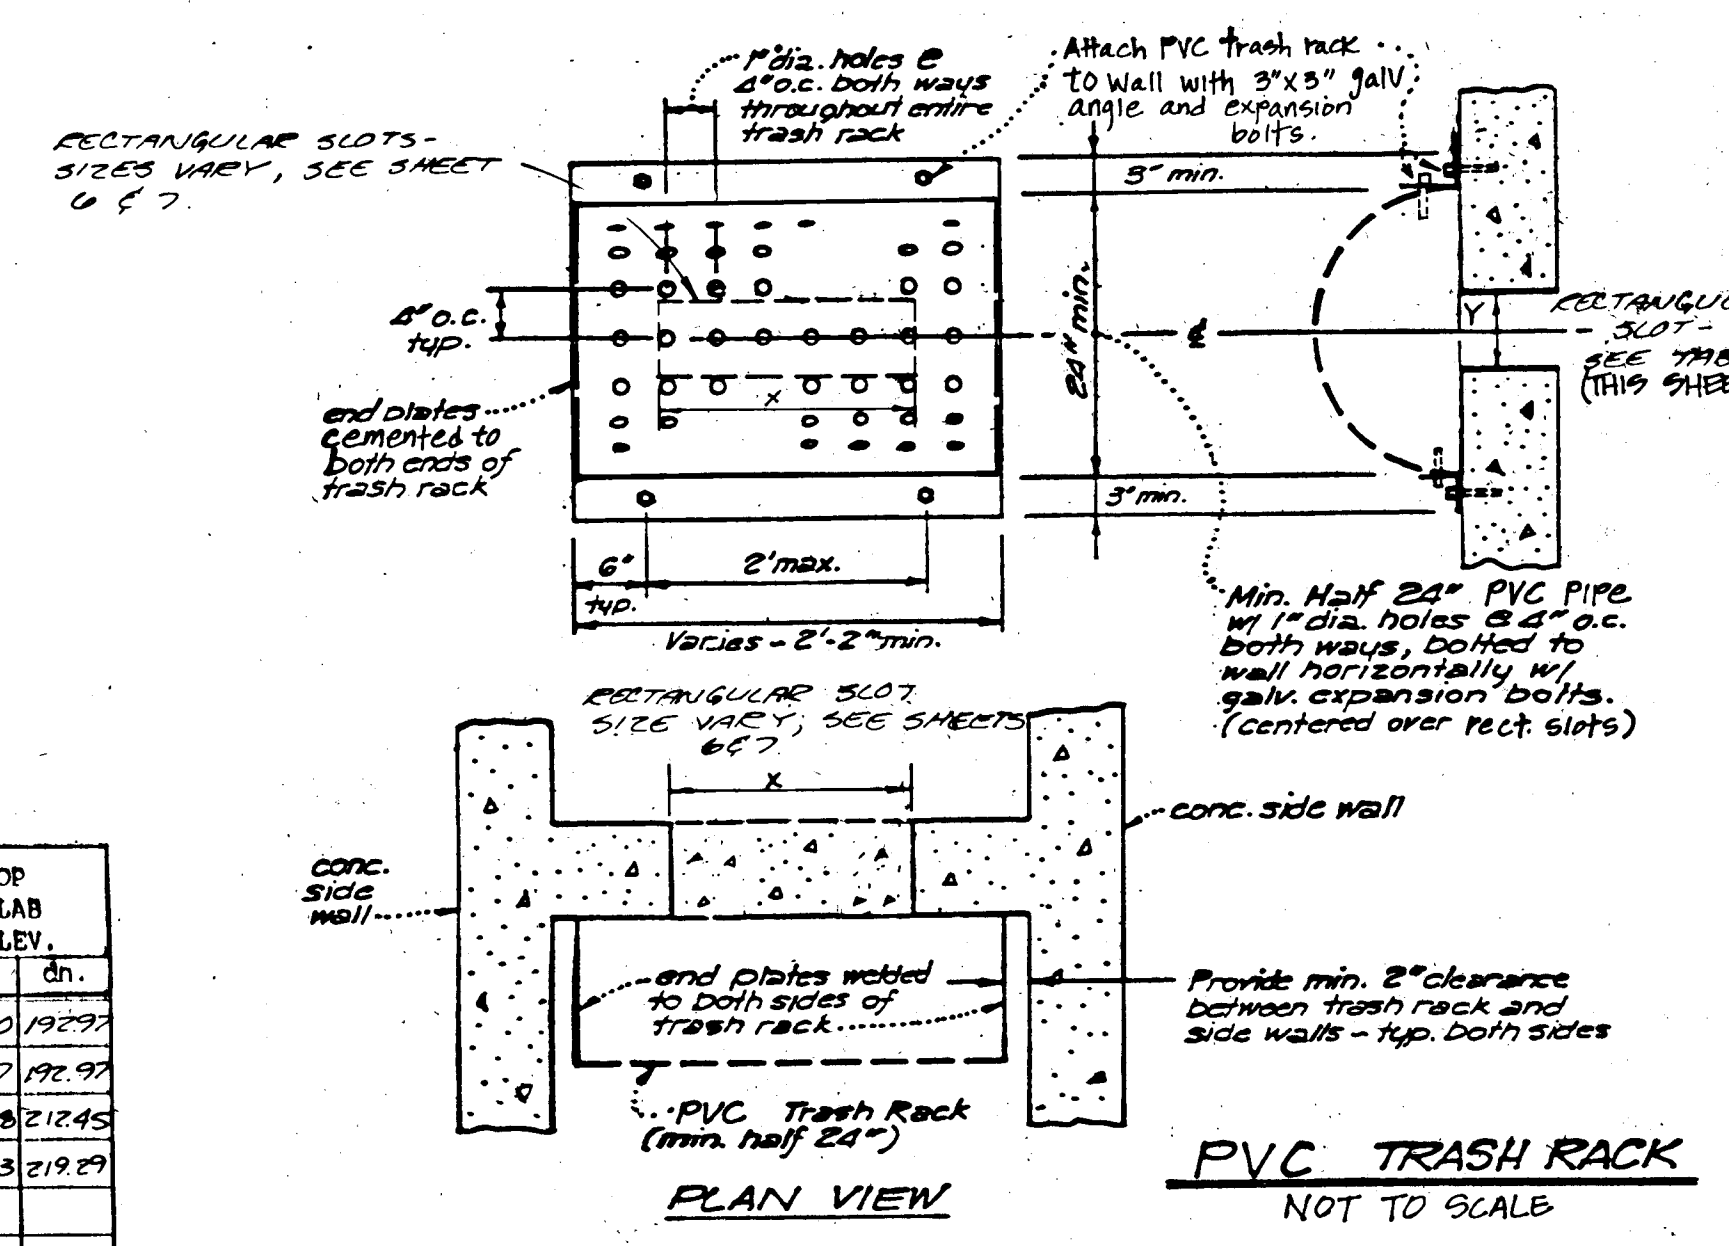 1" dia. holes @
4" o.c. both ways
throughout entire
trash rack
Attach PVC trash rack
to wall with 3"x3" galv
angle and expansion
bolts.
RECTANGULAR SLOTS-
SIZES VARY, SEE SHEET
6 & 7.
3" min.
4" o.c.
typ.
24" min.
℄
Y
RECTANGU
SLOT-
SEE TAB
(THIS SHEE
end plates
cemented to
both ends of
trash rack
x
3" min.
6"
typ.
2' max.
Varies - 2'-2" min.
Min. Half 24" PVC PIPE
w/ 1" dia. holes @ 4" o.c.
both ways, bolted to
wall horizontally w/
galv. expansion bolts.
(centered over rect. slots)
RECTANGULAR SLOT
SIZE VARY, SEE SHEETS
6 & 7
x
conc. side wall
conc.
side
wall
end plates welded
to both sides of
trash rack
Provide min. 2" clearance
between trash rack and
side walls - typ. both sides
PVC Trash Rack
(min. half 24")
PLAN VIEW
PVC TRASH RACK
NOT TO SCALE
OP
LAB
LEV.
dn.
0 192.97
7 192.97
8 212.45
3 219.29